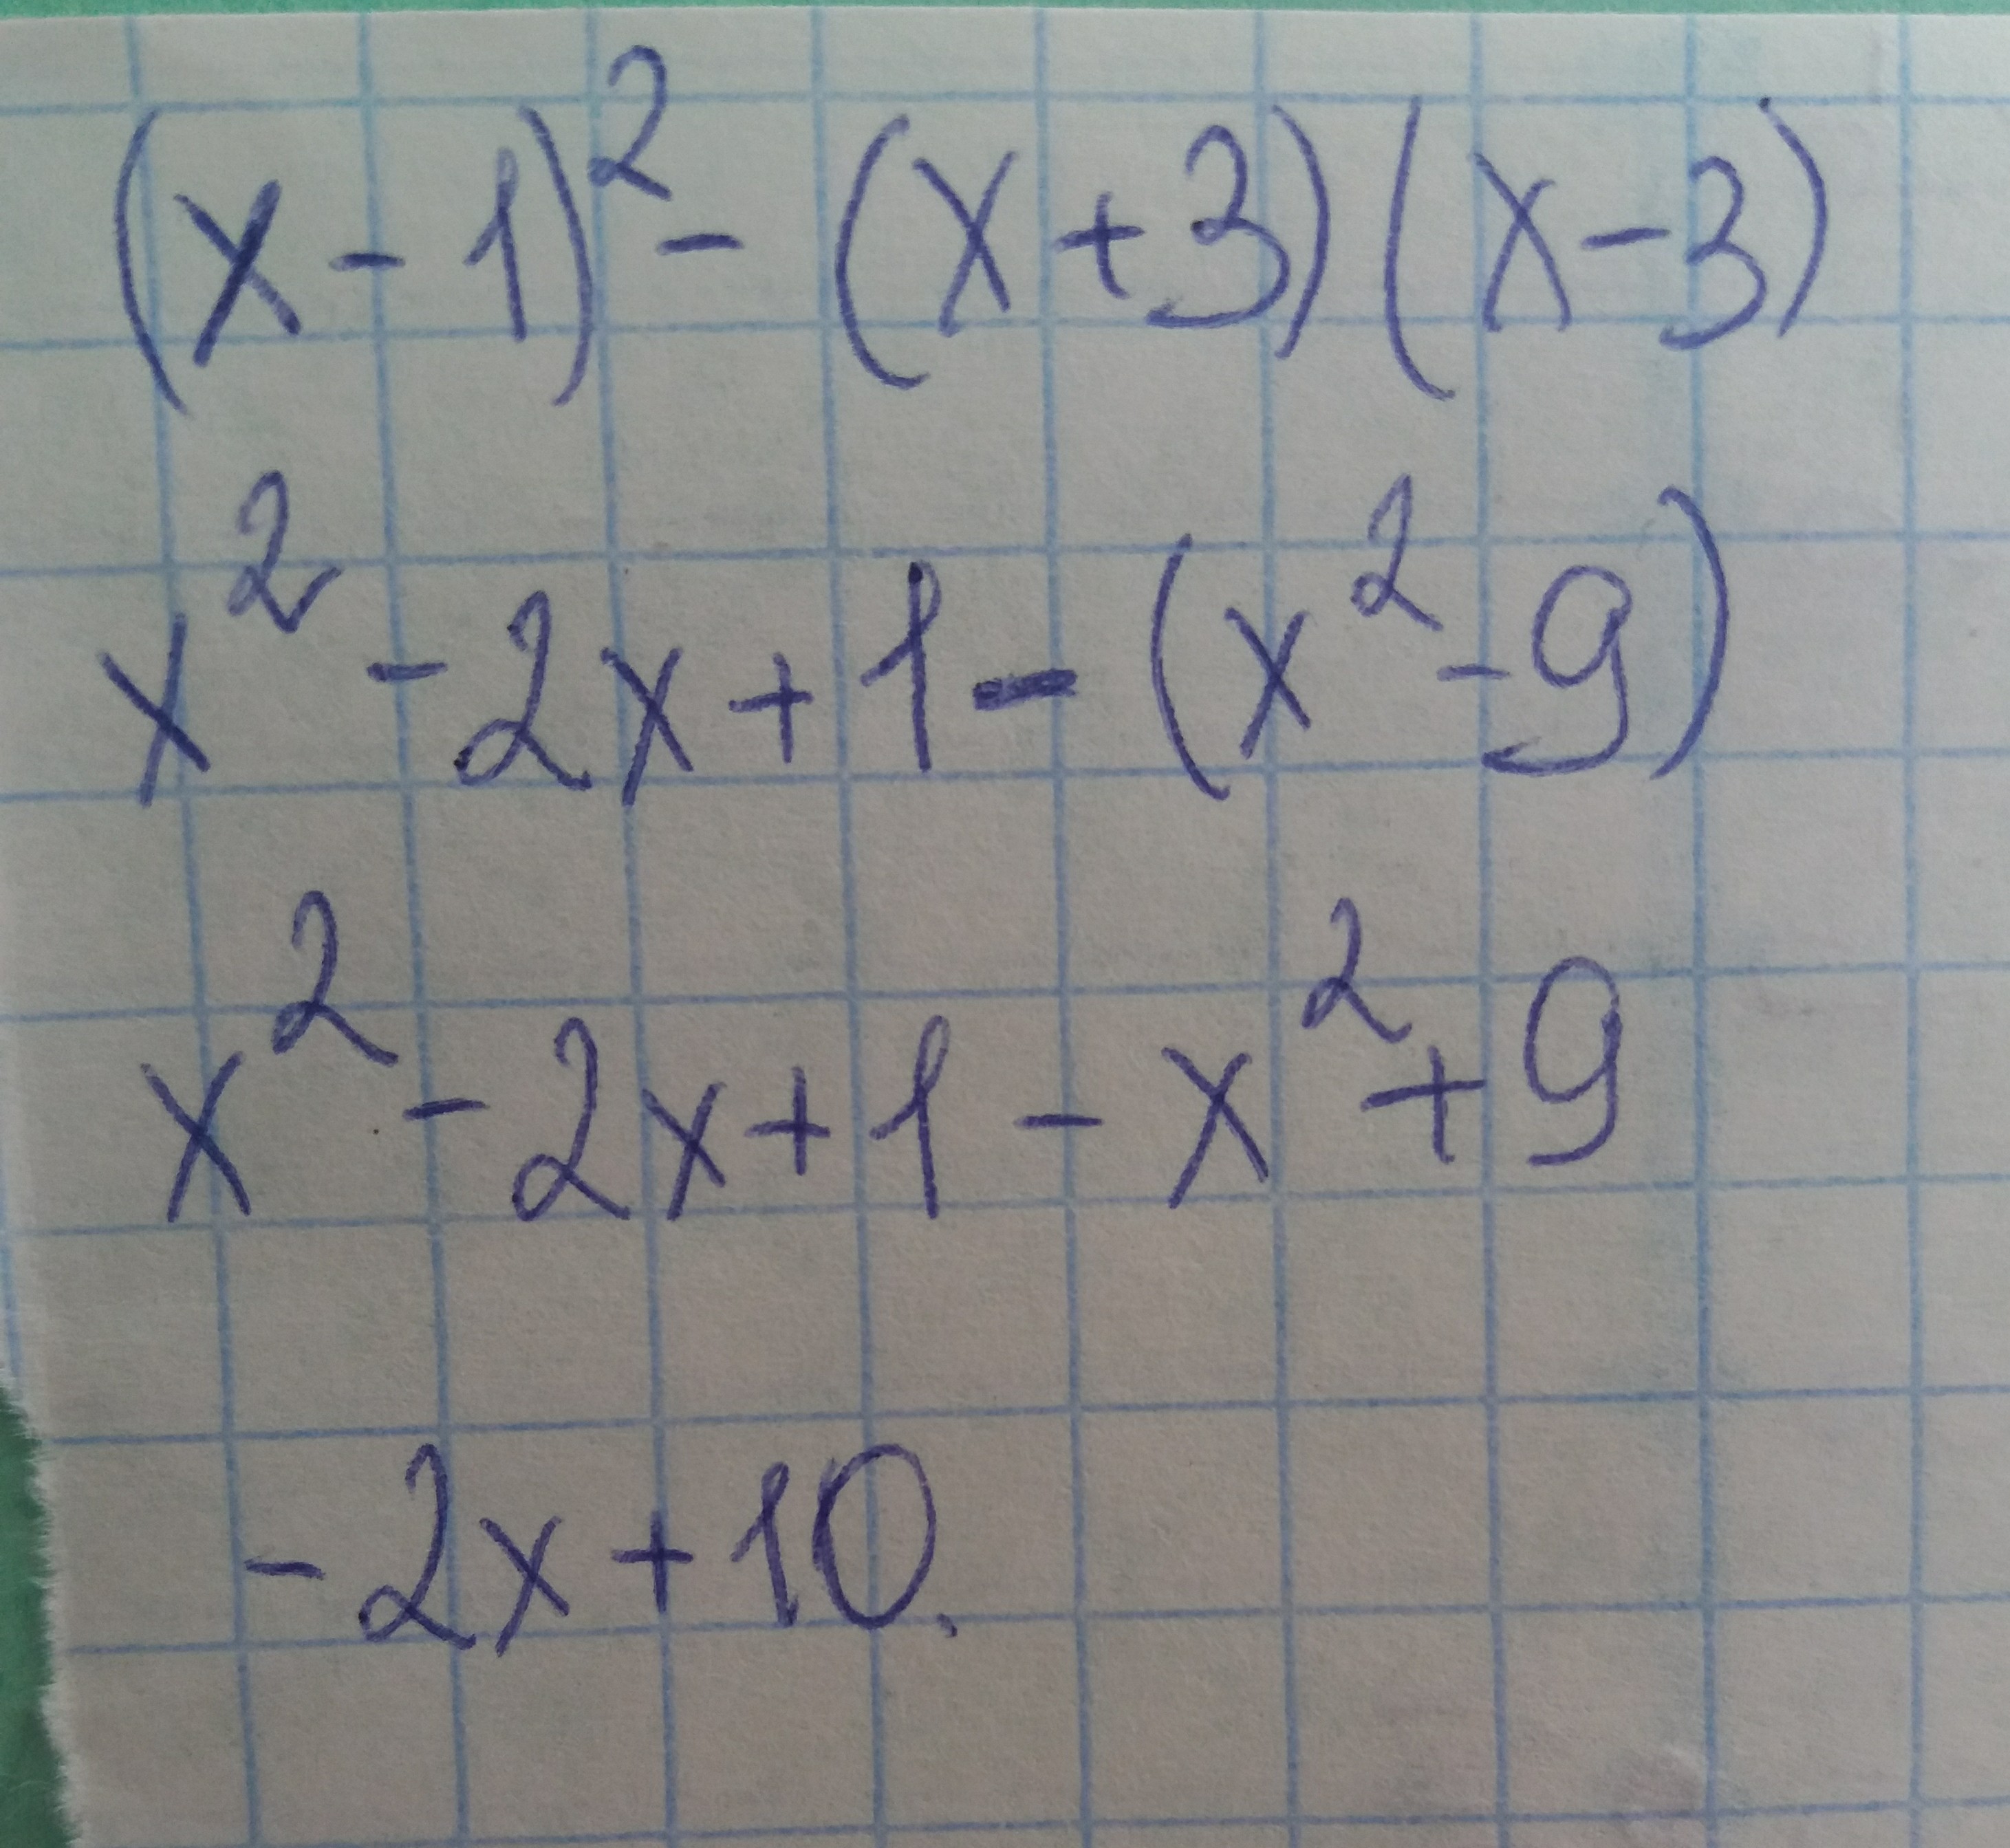 (x-1)² - (x+3)(x-3)
x² - 2x + 1 - (x² - 9)
x² - 2x + 1 - x² + 9
-2x + 10.